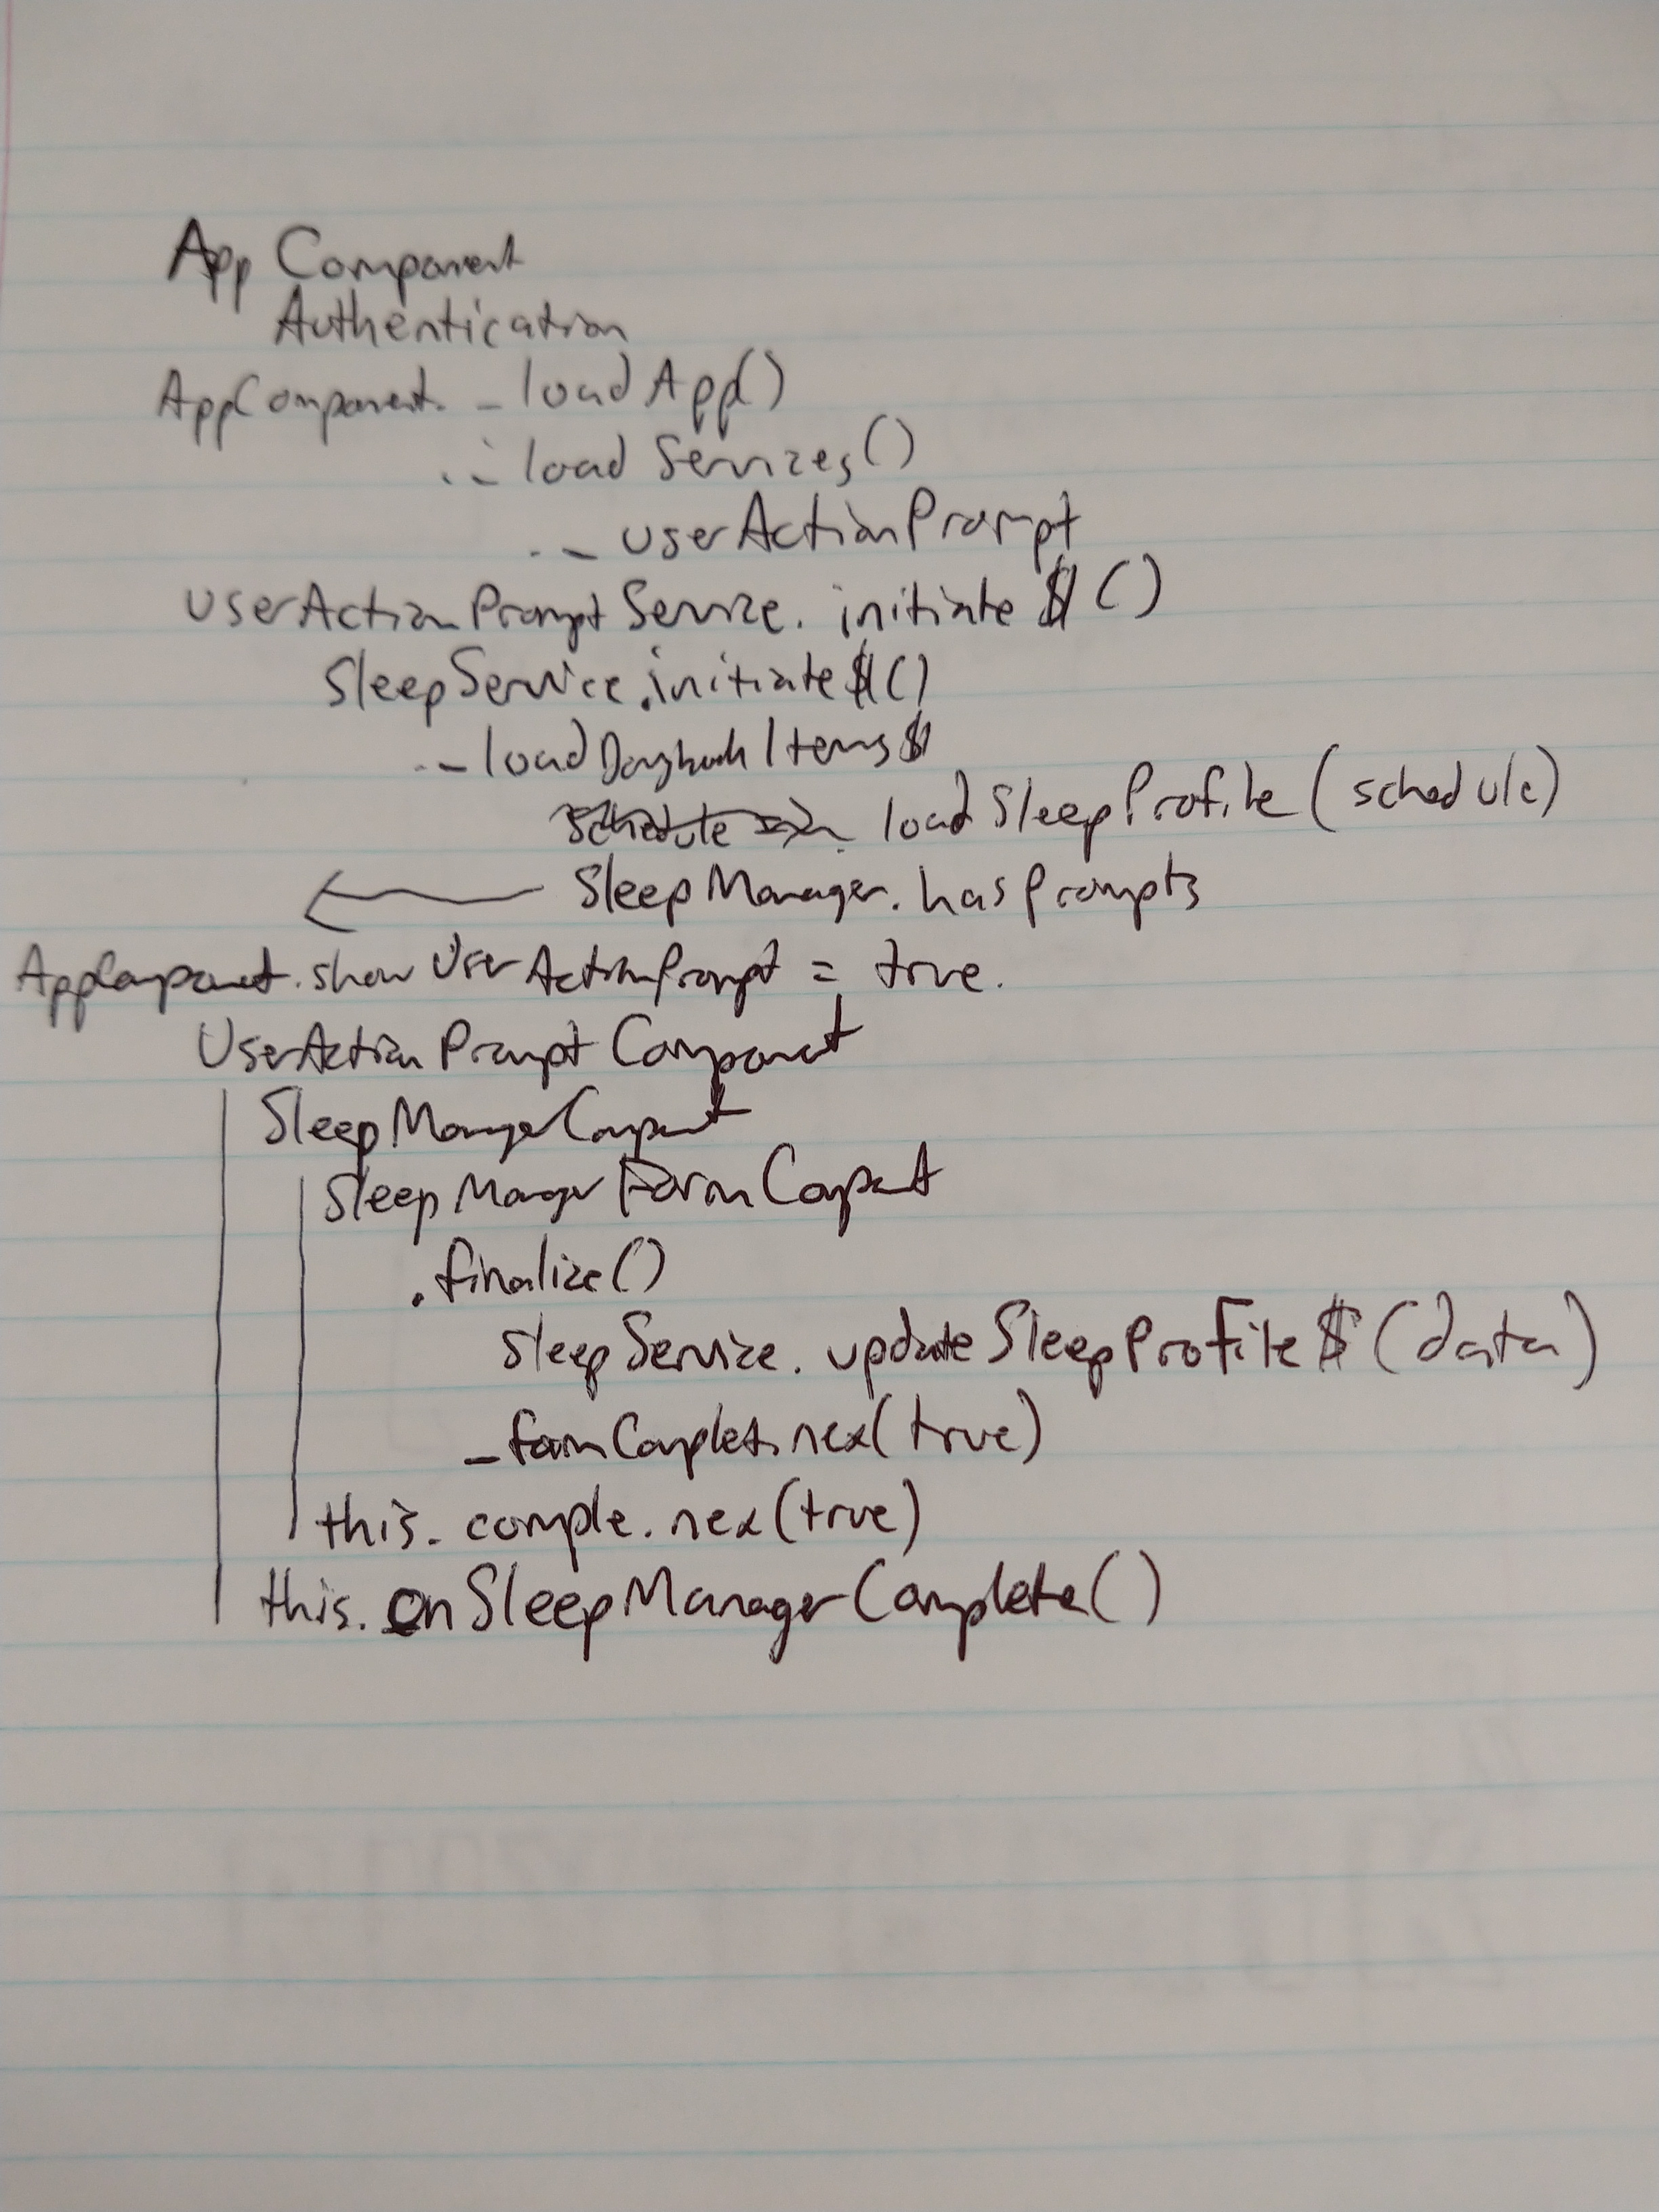 App Component
Authentication
AppComponent. _loadApp()
._loadServices()
._userActionPrompt
userActionPromptService.initiate$()
SleepService.initiate$()
._loadDaybookItems$
schedule => loadSleepProfile(schedule)
← SleepManager.hasPrompts
AppComponent.showUserActionPrompt = true.
UserActionPromptComponent
SleepManagerComponent
SleepManagerFormComponent
.finalize()
sleepService.updateSleepProfile$(data)
_formComplet.nex(true)
this.comple.nex(true)
this.onSleepManagerComplete()